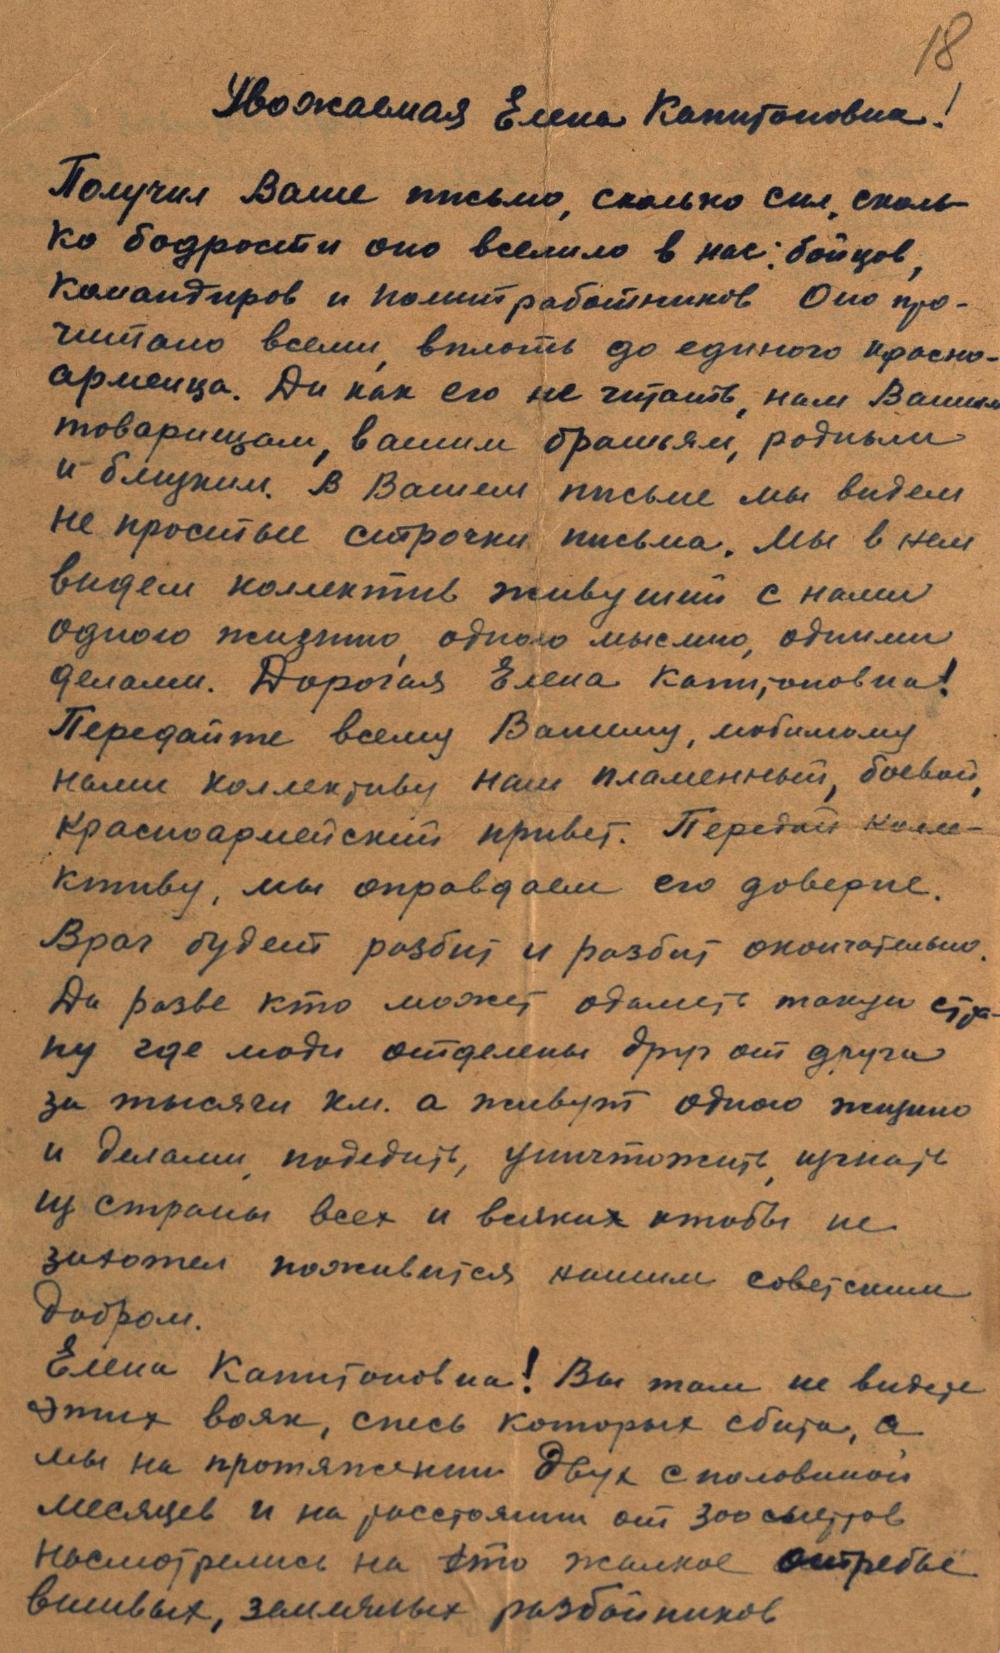 18
Уважаемая Елена Капитоновна!
Получил Ваше письмо, сколько сил, сколь-
ко бодрости оно вселило в нас: бойцов,
командиров и политработников Оно про-
читано всеми, вплоть до единого красно-
армейца. Да как его не читать, нам Вашим
товарищам, вашим братьям, родным
и близким. В Вашем письме мы видем
не простые строчки письма. Мы в нем
видем коллектив живущий с нами
одною жизнью, одною мыслью, одними
делами. Дорогая Елена Капитоновна!
Передайте всему Вашему, любимому
нами коллективу наш пламенный, боевой,
красноармейский привет. Передай колле-
ктиву, мы оправдаем его доверие.
Враг будет разбит и разбит окончательно.
Да разве кто может одалеть такую стра-
ну где люди отделены друг от друга
за тысячи км. а живут одною жизнью
и делами, победить, уничтожить, изгнать
из страны всех и всяких ктобы не
захотел поживится нашим советским
добром.
Елена Капитоновна! Вы там не видете
этих вояк, спесь которых сбита, а
мы на протяжении двух с половиной
месяцев и на расстоянии от 300 метров
насмотрелись на это жалкое отребье
вшивых, разбойников